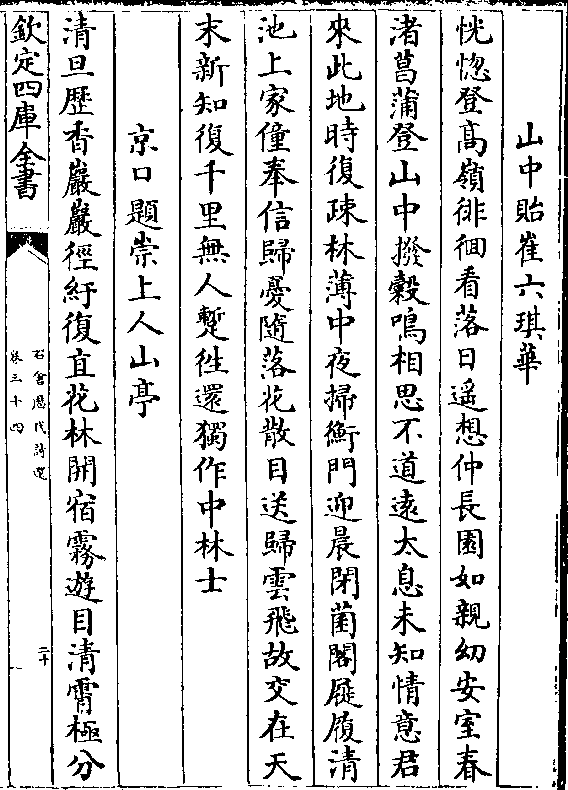 山中貽崔六琪華
恍惚登高嶺徘徊看落日遥想仲長園如親幼安室春
渚菖蒲登山中撥穀鳴相思不道遠太息未知情意君
來此地時復疎林薄中夜掃衡門迎晨閉菌閣屣履清
池上家僮奉信歸憂隨落花散目送歸雲飛故交在天
末新知復千里無人暫徃還獨作中林士
京口題崇上人山亭
清旦歷香巖巖徑紆復直花林開宿霧遊目清霄極分
欽定四庫全書
石倉歴代詩選
卷三十四
二十